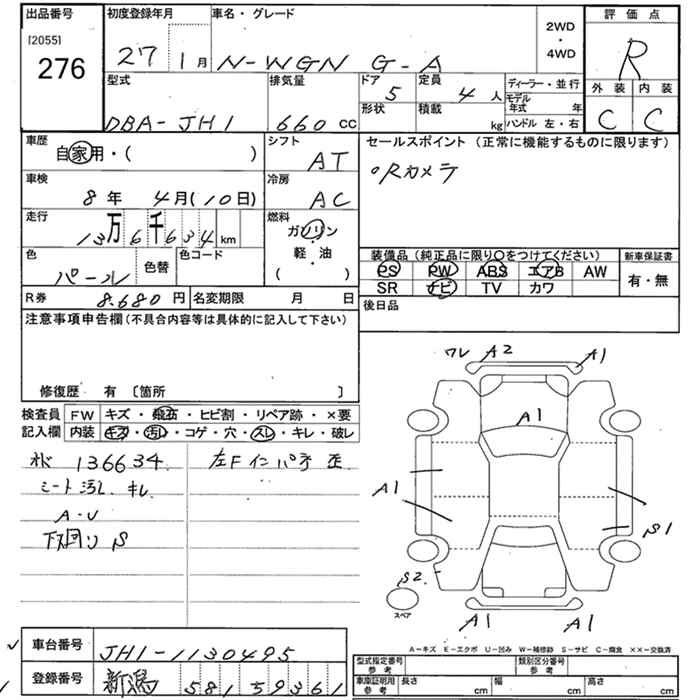 出品番号 初度登録年月 車名・グレード 2WD・4WD 評価点
[2055]
276
27 1月 N-WGN G-A R
型式 排気量 ドア 5 定員 4人 ディーラー・並行 外装 内装
DBA-JH1 660 CC 形状 積載 kg モデル年式 年 ハンドル 左・右 C C
車歴 自家用・( ) シフト AT セールスポイント (正常に機能するものに限ります)
車検 8年 4月(10日) 冷房 AC ○Rカメラ
走行 13万6千634km 燃料 ガソリン・軽油( )
色 パール 色替 色コード
装備品 (純正品に限り○をつけてください) 新車保証書
PS PW ABS エアB AW 有・無
SR ナビ TV カワ
R券 8,680円 名変期限 月 日 後日品
注意事項申告欄(不具合内容等は具体的に記入して下さい)
修復歴 有 〔箇所 〕
検査員 FW キズ・飛石・ヒビ割・リペア跡・×要
記入欄 内装 キズ・汚レ・コゲ・穴・スレ・キレ・破レ
136634. 左Fインパネ歪
シート汚レ キレ
A・U
下廻り S
ワレ A2 A1
A1
A1
S1
S2
スペア
A1 A1
A-キズ E-エクボ U-凹み W-補修跡 S-サビ C-腐食 ××-交換済
車台番号 JH1-1130495
登録番号 新潟 581 59361
型式指定番号 参考 類別区分番号 参考
車庫証明用 参考 長さ cm 幅 cm 高さ cm